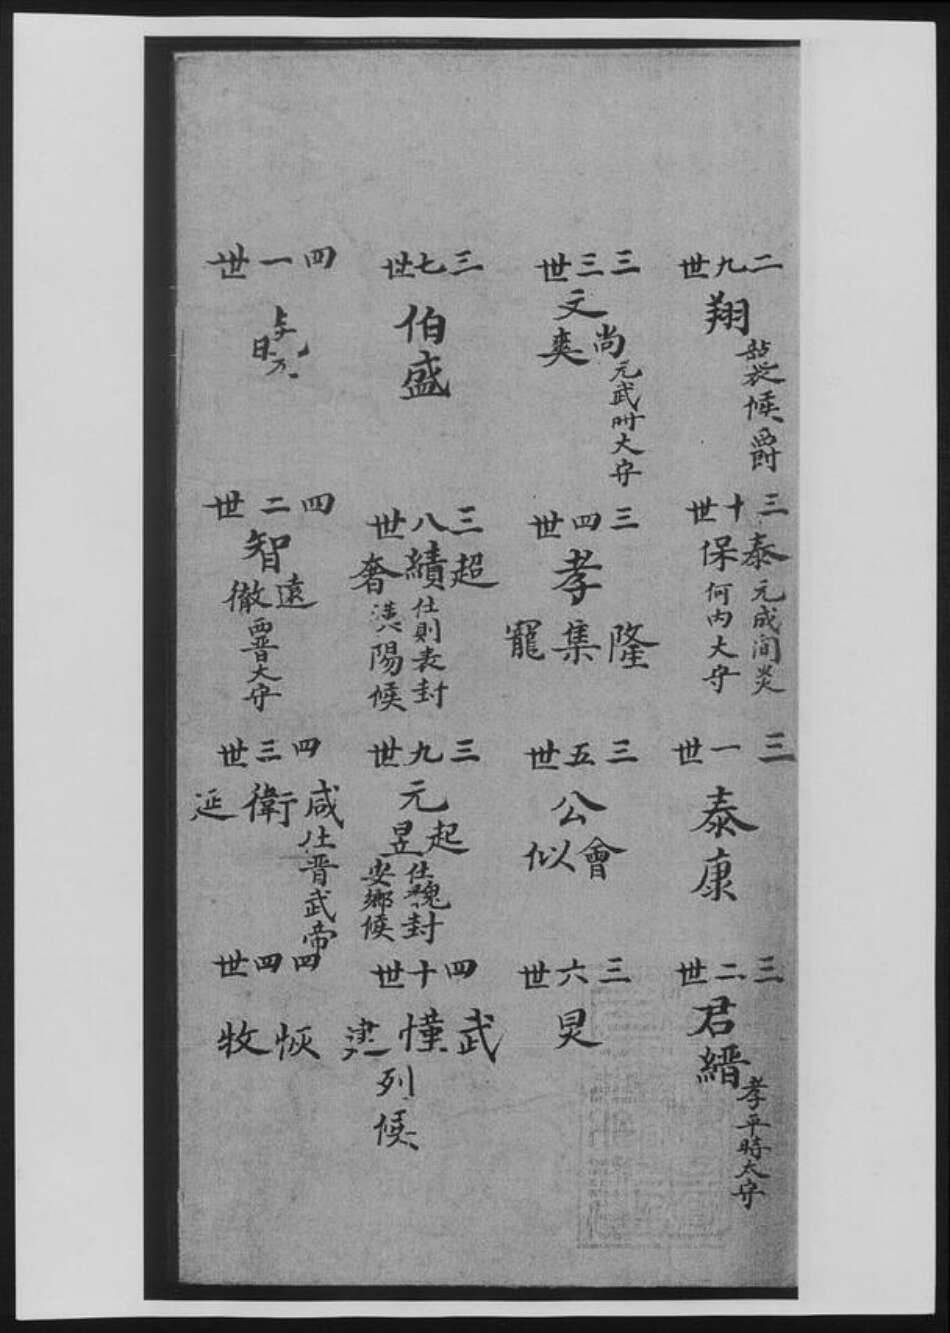 二九世
翔
襲候爵
三十世
泰
保
元成間炎
何内大守
三一世
泰康
三二世
君縉
孝平時太守
三三世
文
尚
爽
元武时大守
三四世
孝
隆
集
寵
三五世
公
會
似
三六世
炅
三七世
伯盛
三八世
超
績
奢
仕則表封
漢陽候
三九世
元
起
昱
仕魏封
安鄉候
四十世
武
慬
建
列候
四一世
四二世
智
遠
徹
晋大守
四三世
咸
仕晋武帝
衛
延
四四世
恢
牧